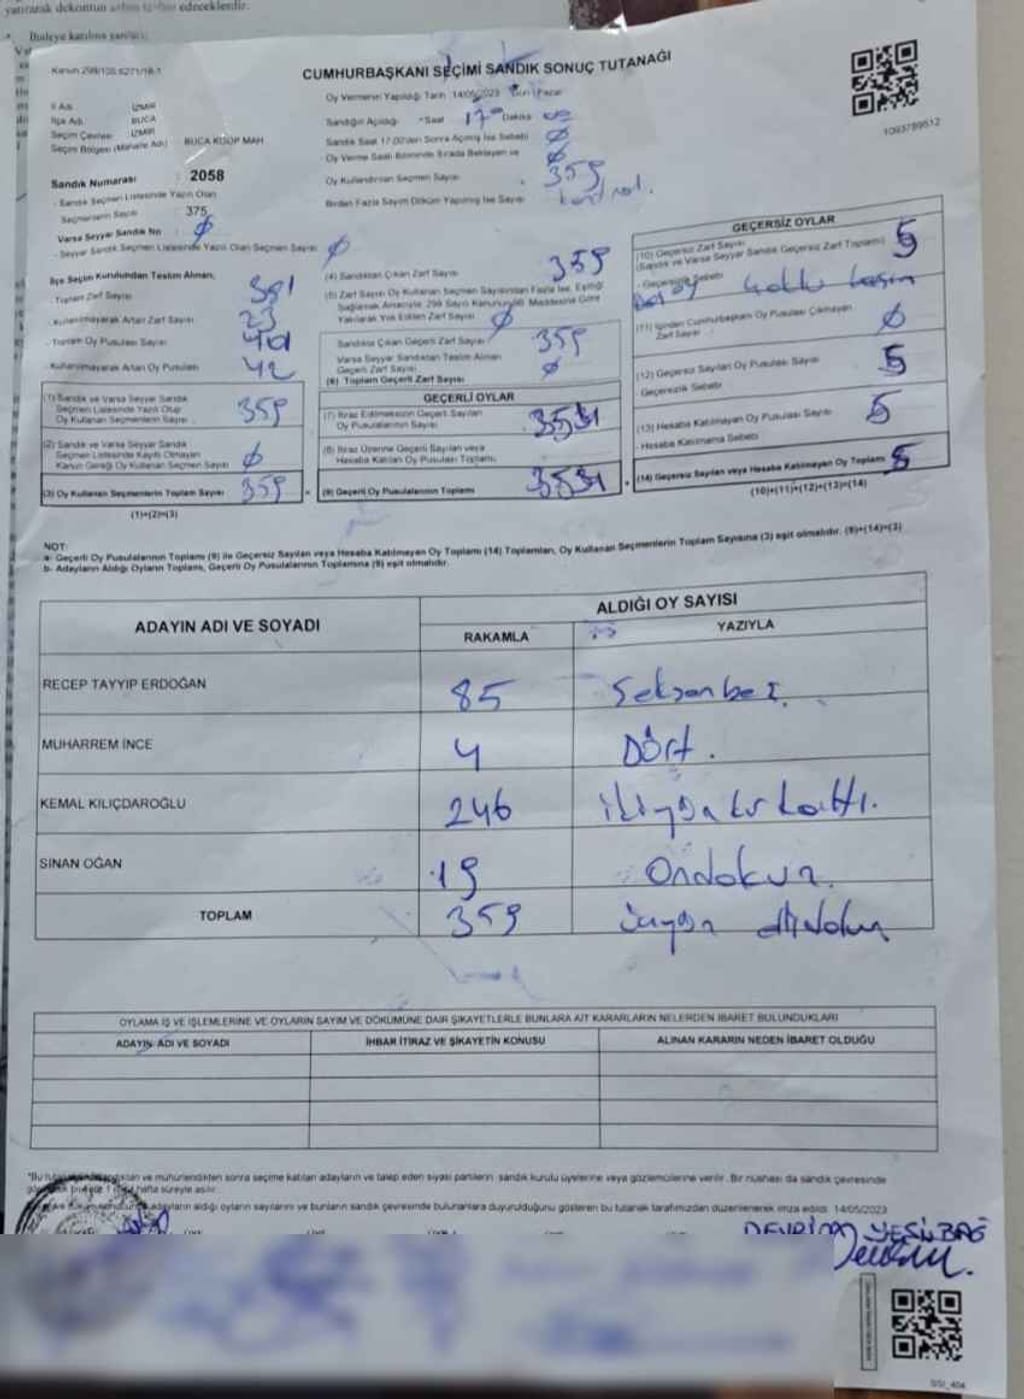 yatırarak dekontun edeceklerdir.
İhaleye katılma şartları:
Kanun 298/105 6271/18-1
CUMHURBAŞKANI SEÇİMİ SANDIK SONUÇ TUTANAĞI
1093789512
Oy Vermenin Yapıldığı Tarih 14/05/2023 Pazar
İl Adı İZMİR
İlçe Adı BUCA
Seçim Çevresi İZMİR
Seçim Bölgesi (Mahalle Adı) BUCA KOOP MAH
Sandık Numarası : 2058
- Sandık Seçmen Listesinde Yazılı Olan
Seçmenlerin Sayısı : 375
Varsa Seyyar Sandık No : Ø
- Seyyar Sandık Seçmen Listesinde Yazılı Olan Seçmen Sayısı Ø
Sandığın Açıldığı - Saat 17 Dakika
Sandık Saat 17.00'den Sonra Açılmış İse Sebebi Ø
Oy Verme Saati Bitiminde Sırada Bekleyen ve Ø
Oy Kullandırılan Seçmen Sayısı 359
Birden Fazla Sayım Döküm Yapılmış İse Sayısı kontrol.
İlçe Seçim Kurulundan Teslim Alınan;
- Toplam Zarf Sayısı
- Kullanılmayarak Artan Zarf Sayısı 23
- Toplam Oy Pusulası Sayısı 401
- Kullanılmayarak Artan Oy Pusulası 42
(1) Sandık ve Varsa Seyyar Sandık
Seçmen Listesinde Yazılı Olup
Oy Kullanan Seçmenlerin Sayısı 359
(2) Sandık ve Varsa Seyyar Sandık
Seçmen Listesinde Kayıtlı Olmayan
Kanun Gereği Oy Kullanan Seçmen Sayısı Ø
(3) Oy Kullanan Seçmenlerin Toplam Sayısı 359
(1)+(2)=(3)
(4) Sandıktan Çıkan Zarf Sayısı 359
(5) Zarf Sayısı Oy Kullanan Seçmen Sayısından Fazla İse, Eşitliği
Sağlamak Amacıyla 298 Sayılı Kanunun 98. Maddesine Göre
Yakılarak Yok Edilen Zarf Sayısı Ø
Sandıkta Çıkan Geçerli Zarf Sayısı 359
Varsa Seyyar Sandıktan Teslim Alınan
Geçerli Zarf Sayısı Ø
(6) Toplam Geçerli Zarf Sayısı
GEÇERLİ OYLAR
(7) İtiraz Edilmeksizin Geçerli Sayılan
Oy Pusulalarının Sayısı
(8) İtiraz Üzerine Geçerli Sayılan veya
Hesaba Katılan Oy Pusulası Toplamı
(9) Geçerli Oy Pusulalarının Toplamı
GEÇERSİZ OYLAR
(10) Geçersiz Zarf Sayısı 5
(Sandık ve Varsa Seyyar Sandık Geçersiz Zarf Toplamı)
- Geçersizlik Sebebi
(11) İçinden Cumhurbaşkanı Oy Pusulası Çıkmayan
Zarf Sayısı Ø
(12) Geçersiz Sayılan Oy Pusulası Sayısı 5
Geçersizlik Sebebi
(13) Hesaba Katılmayan Oy Pusulası Sayısı 5
- Hesaba Katılmama Sebebi
(14) Geçersiz Sayılan veya Hesaba Katılmayan Oy Toplamı 5
(10)+(11)+(12)+(13)=(14)
NOT:
a- Geçerli Oy Pusulalarının Toplamı (9) ile Geçersiz Sayılan veya Hesaba Katılmayan Oy Toplamı (14) Toplamları, Oy Kullanan Seçmenlerin Toplam Sayısına (3) eşit olmalıdır. (9)+(14)=(3)
b- Adayların Aldığı Oyların Toplamı, Geçerli Oy Pusulalarının Toplamına (9) eşit olmalıdır.
ADAYIN ADI VE SOYADI
ALDIĞI OY SAYISI
RAKAMLA YAZIYLA
RECEP TAYYIP ERDOĞAN 85 Seksenbeş.
MUHARREM İNCE 4 Dört.
KEMAL KILIÇDAROĞLU 246 ikiyüzkırkaltı.
SİNAN OĞAN 19 Ondokuz.
TOPLAM 359
OYLAMA İŞ VE İŞLEMLERİNE VE OYLARIN SAYIM VE DÖKÜMÜNE DAİR ŞİKAYETLERLE BUNLARA AİT KARARLARIN NELERDEN İBARET BULUNDUKLARI
ADAYIN ADI VE SOYADI İHBAR İTİRAZ VE ŞİKAYETİN KONUSU ALINAN KARARIN NEDEN İBARET OLDUĞU
ve mühürlendikten sonra seçime katılan adayların ve talep eden siyasi partilerin sandık kurulu üyelerine veya gözlemcilerine verilir. Bir nüshası da sandık çevresinde
hafta süreyle asılır.
adayların aldığı oyların sayılarını ve bunların sandık çevresinde bulunanlara duyurulduğunu gösteren bu tutanak tarafımızdan düzenlenerek imza edildi. 14/05/2023
DEVRİM YEŞİLBAĞ
SSI_404